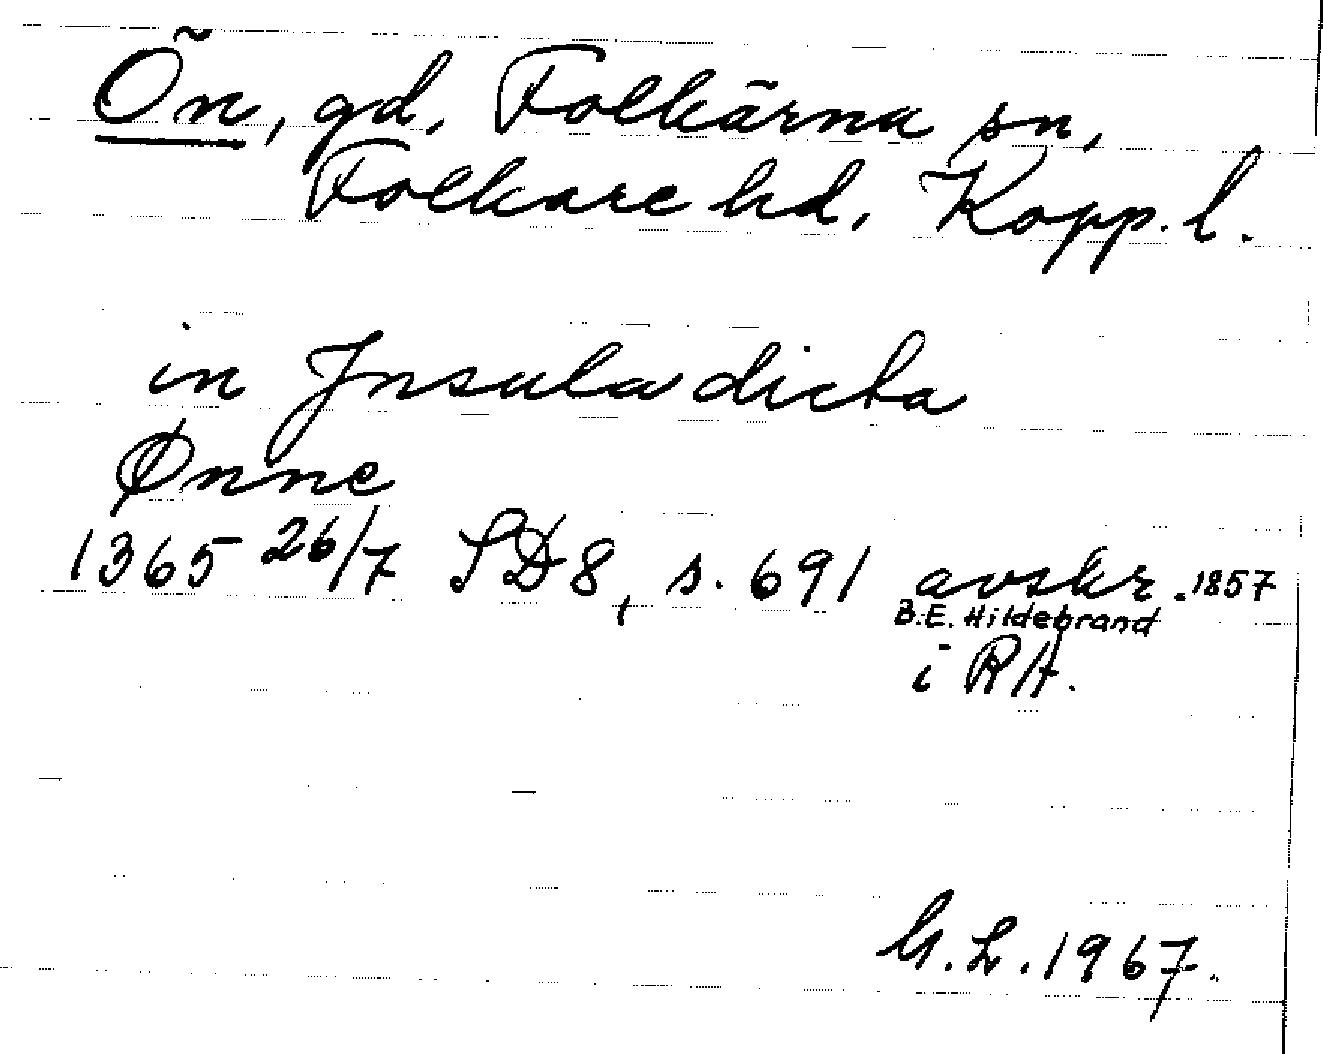 Ön, gd, Folkärna sn,
Folkare hd, Kopp. l.
in Jnsula dicta
Ønne
1365 26/7 SD 8, s. 691 avskr. 1857
B.E. Hildebrand
i RA.
G. L. 1967.